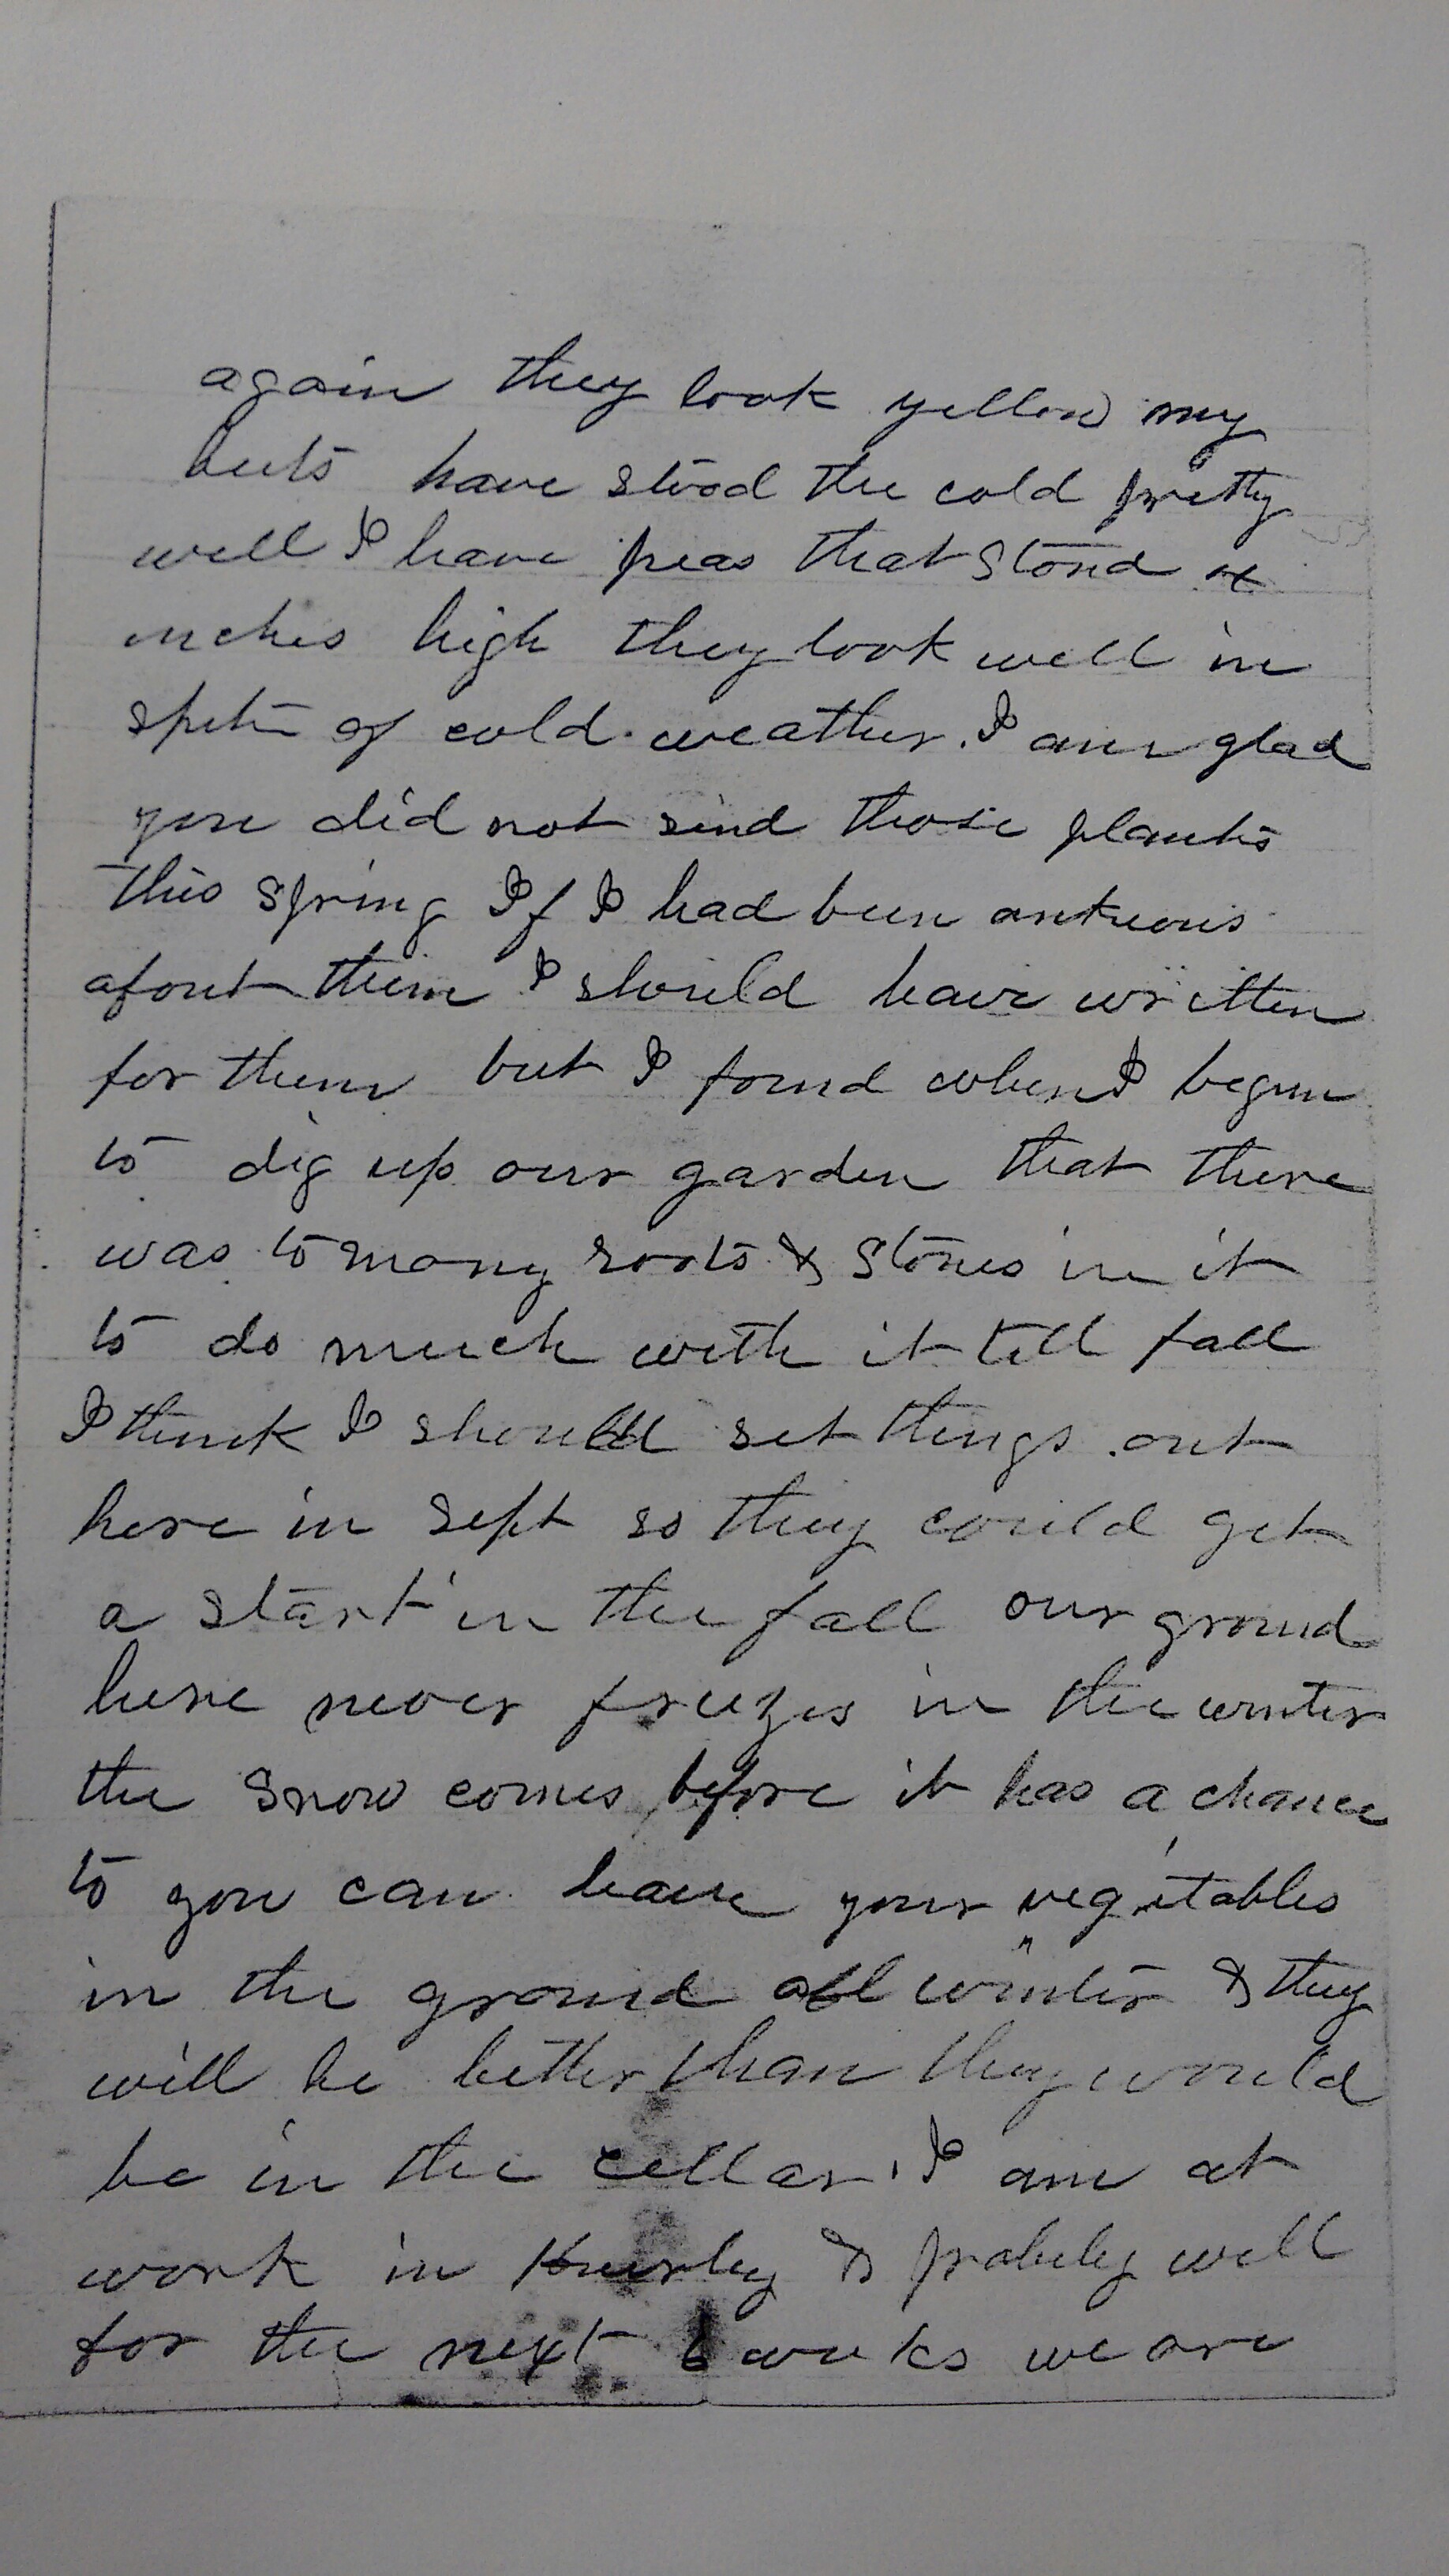 again they look yellow my
beets have stood the cold pretty
well I have peas that stand
inches high they look well in
spite of cold weather. I am glad
you did not send those plants
this spring If I had been
about them I should have written
for them but I found when I begun
to dig up our garden that there
was to many roots & stones in it
to do much with it till fall
I think I should set things out
here in Sept so they could get
a start in the fall our ground
here never freezes in the winter
the snow comes before it has a chance
to you can leave your vegitables
in the ground all winter & they
will be better than they would
be in the cellar, I am at
work in & probely will
for the next 6 weeks we are